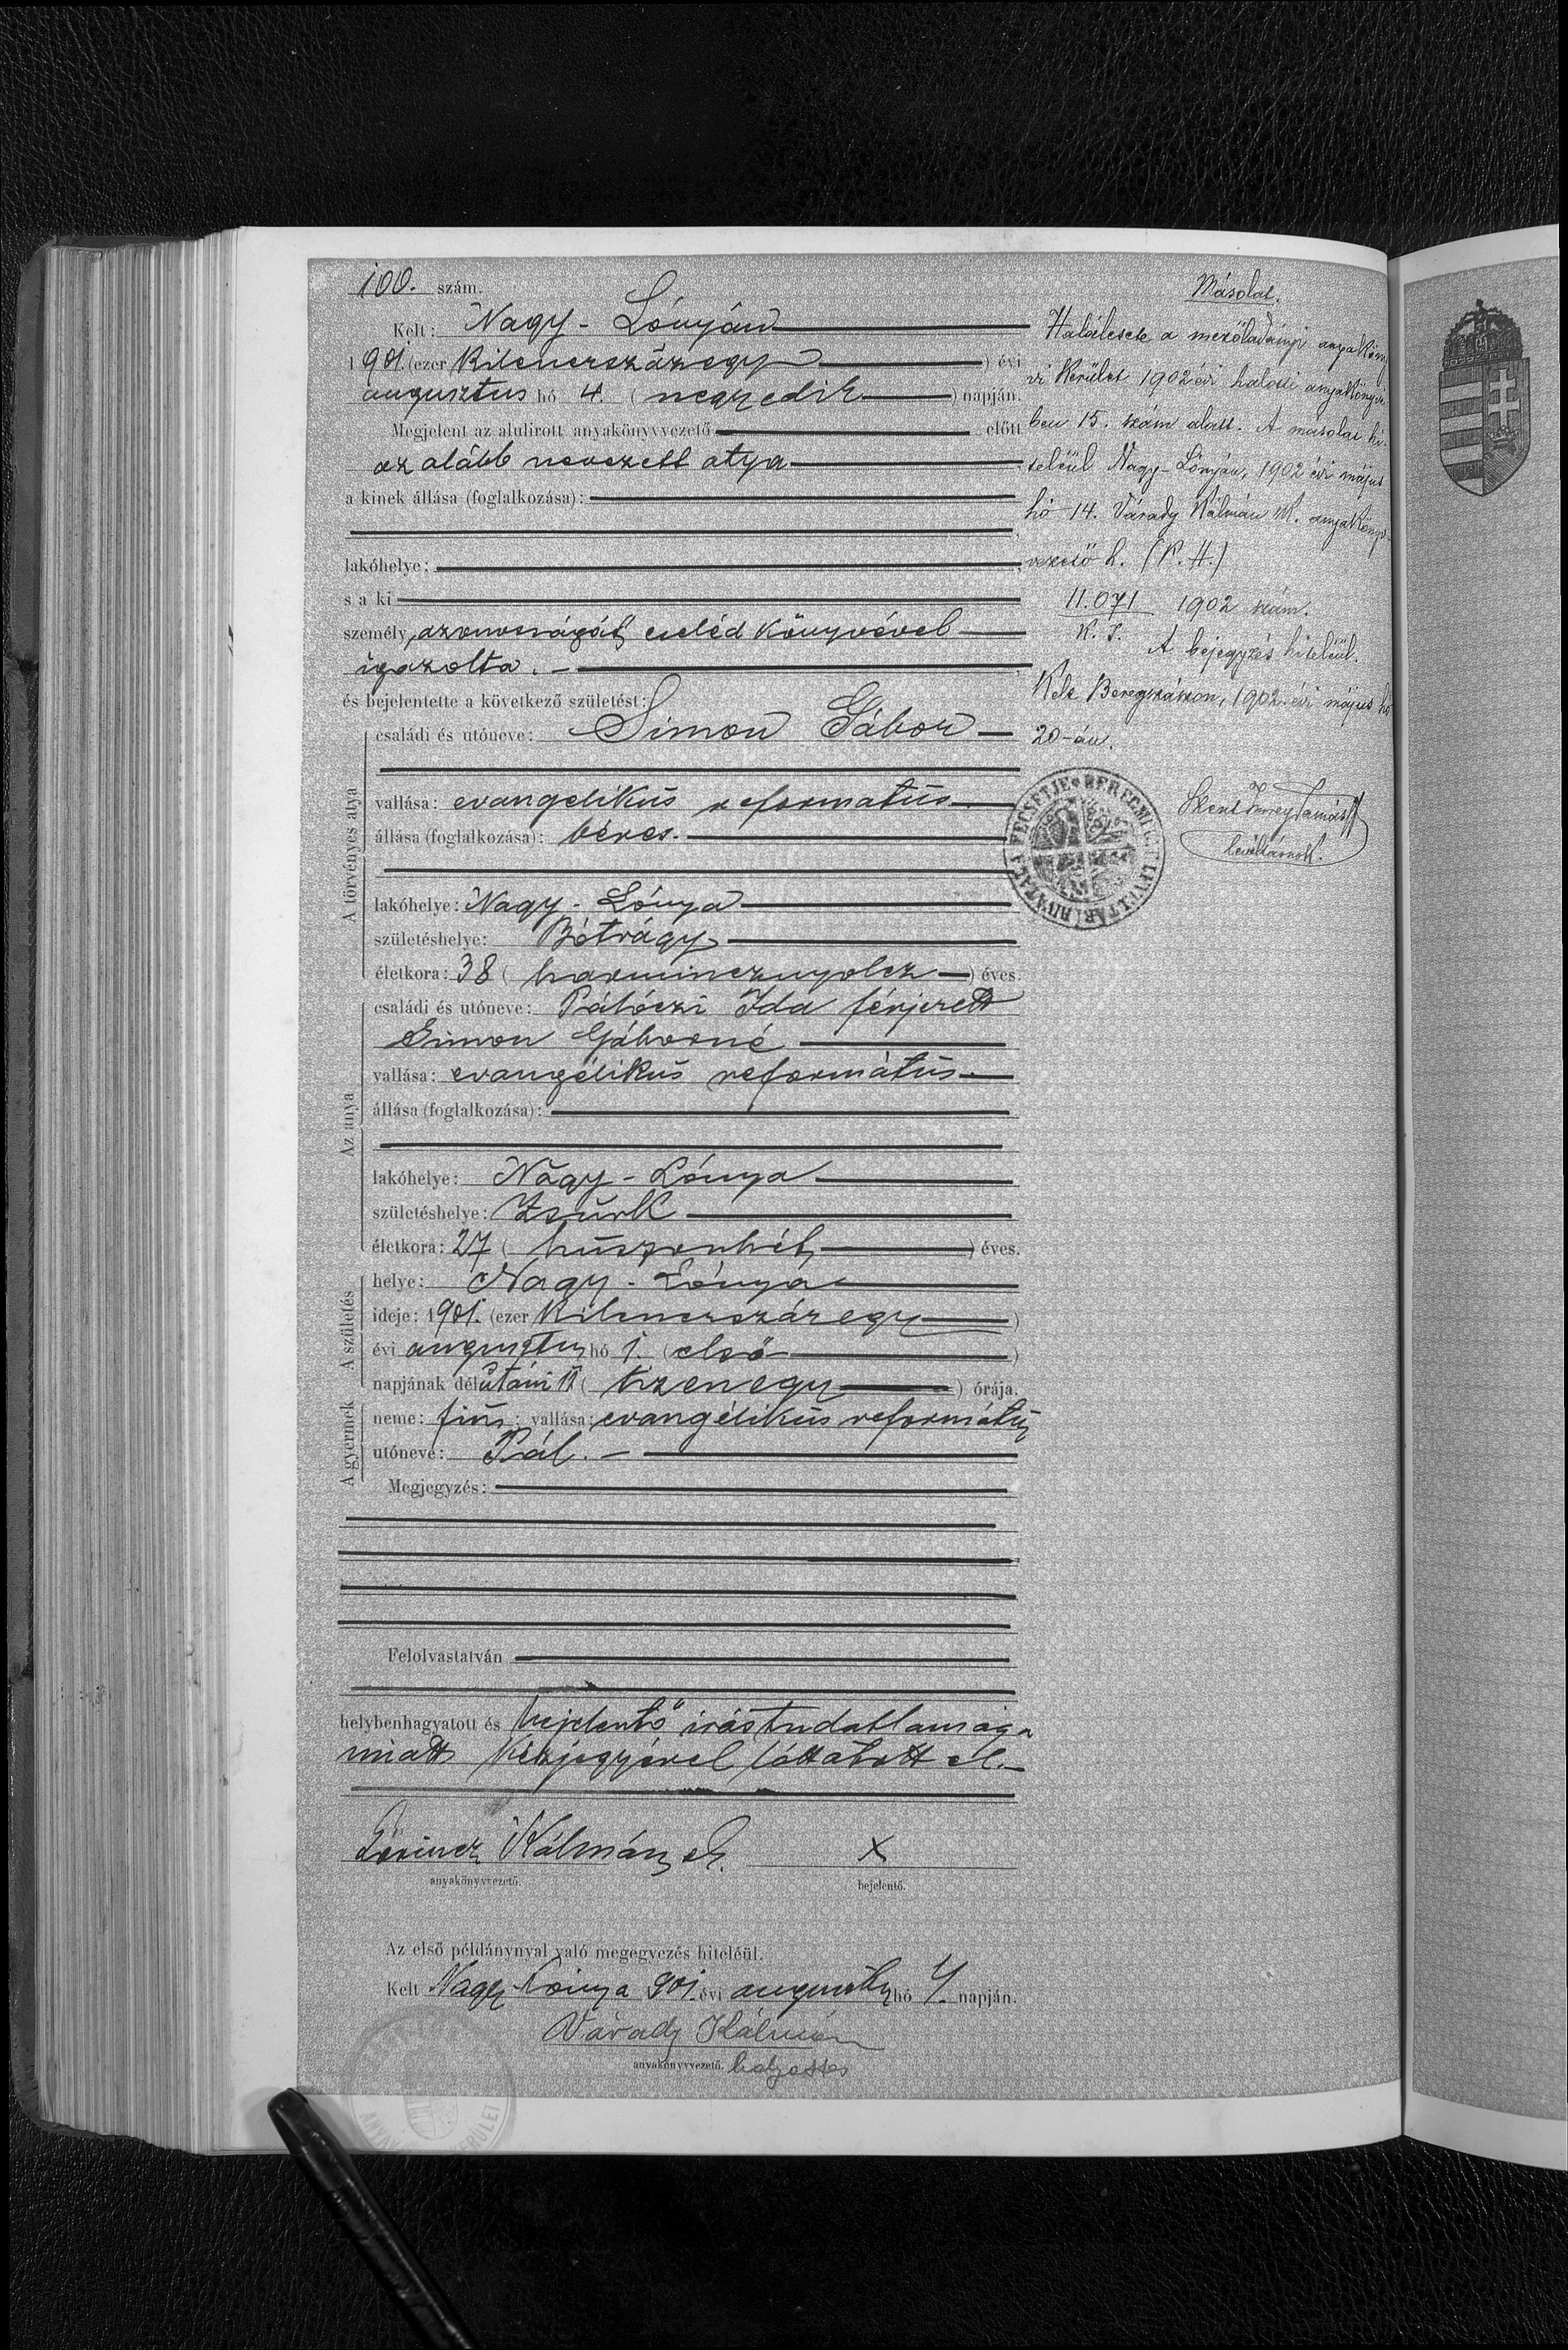 100. szám.
Kelt: Nagy-Lónyán
1901. (ezer kilenczszázegy) évi
augusztus hó 4. (negyedik) napján.
Megjelent az alulirott anyakönyvvezető előtt
az alább nevezett atya
a kinek állása (foglalkozása):
lakóhelye:
s a ki
személyazonosságát cseléd könyvével
igazolta. -
és bejelentette a következő születést:
A törvényes atya
családi és utóneve: Simon Gábor
vallása: evangelikus reformatus
állása (foglalkozása): béres.
lakóhelye: Nagy-Lónya
születéshelye: Bótrágy
életkora: 38 (harmincznyolcz) éves.
Az anya
családi és utóneve: Pálóczi Ida férjezett
Simon Gáborné
vallása: evangélikus református
állása (foglalkozása):
lakóhelye: Nagy-Lónya
születéshelye: Zsurk
életkora: 27 (huszonhét) éves.
A születés
helye: Nagy-Lónya
ideje: 1901. (ezer kilenczszázegy)
évi augusztus hó 1. (első)
napjának délutáni 11 (tizenegy) órája.
A gyermek
neme: fiú; vallása: evangélikus református
utóneve: Pál. -
Megjegyzés:
Felolvastatván
helybenhagyatott és bejelentő irástudatlansága
miatt kézjegyével láttatott el. -
Lőrincz Kálmán x
anyakönyvvezető. bejelentő.
Az első példánynyal való megegyezés hiteléül.
Kelt Nagy-Lónya 901. évi augusztus hó 4. napján.
Várady Kálmán
anyakönyvvezető. helyettes
Másolat.
Halálesete a mezőladányi anyaköny
vi kerület 1902 évi halotti anyakönyvé-
ben 15. szám alatt. A másolat hi-
teléül Nagy-Lónyán, 1902 évi május
hó 14. Várady Kálmán sk. anyakönyv-
vezető h. (P. H.)
11.071 1902 szám.
A bejegyzés hiteléül.
Kelt Beregszászon, 1902. évi május hó
20-án.
Szent Imrey Tamás
levéltárnok.